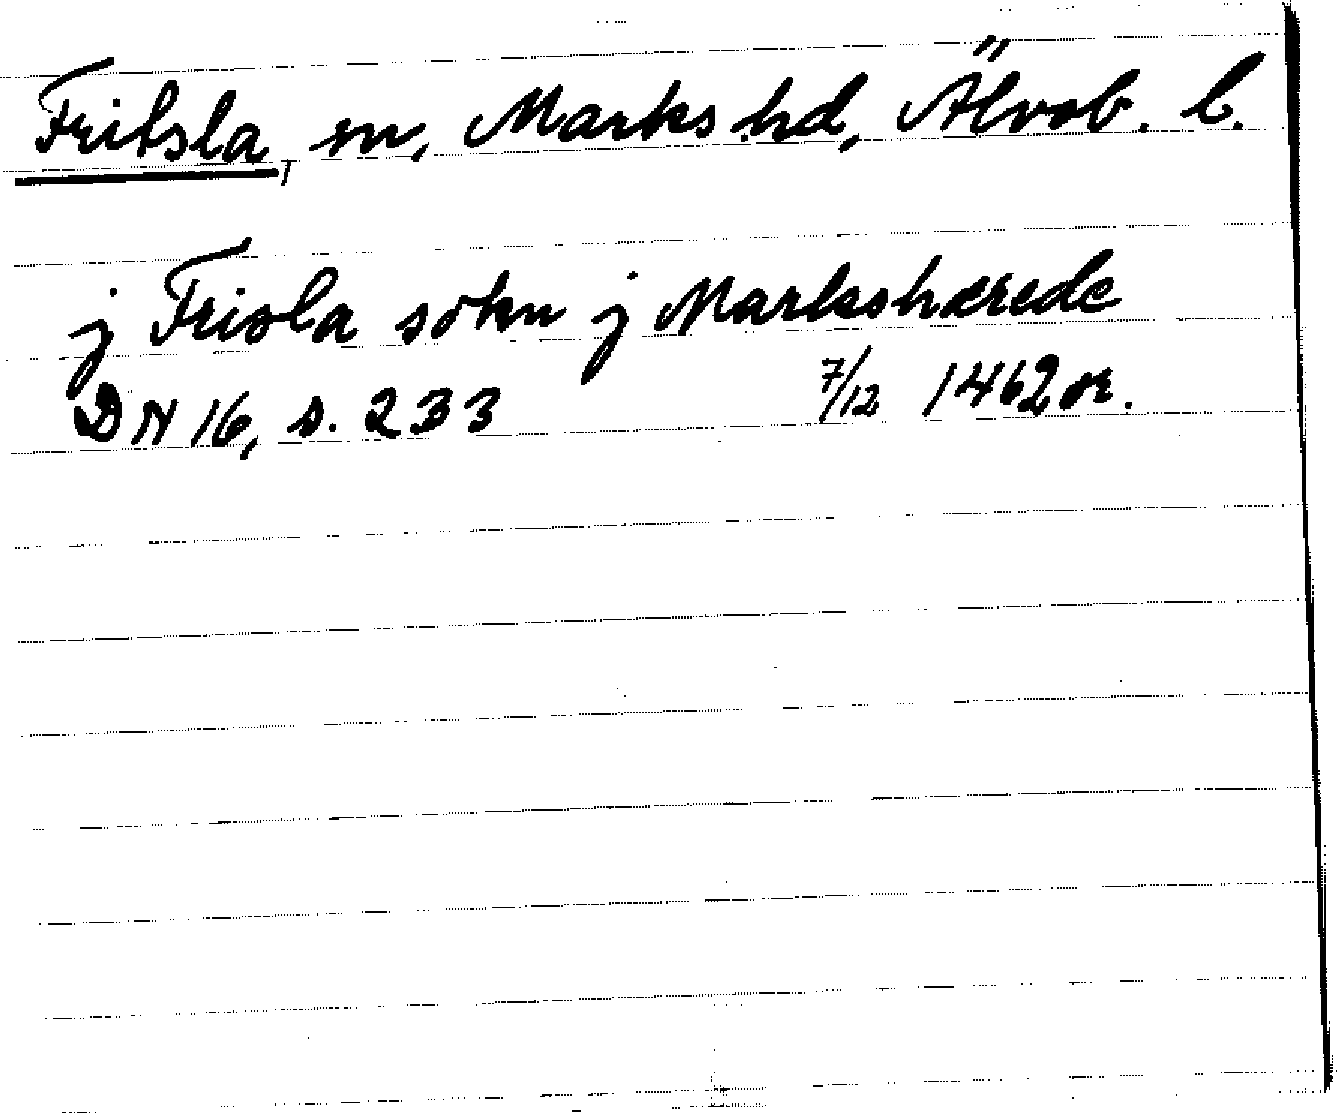 Fritsla sn, Marks hd, Älvsb. l.
j Frisla sokn j Markshærede
DN 16, s. 233 7/12 1462 or.